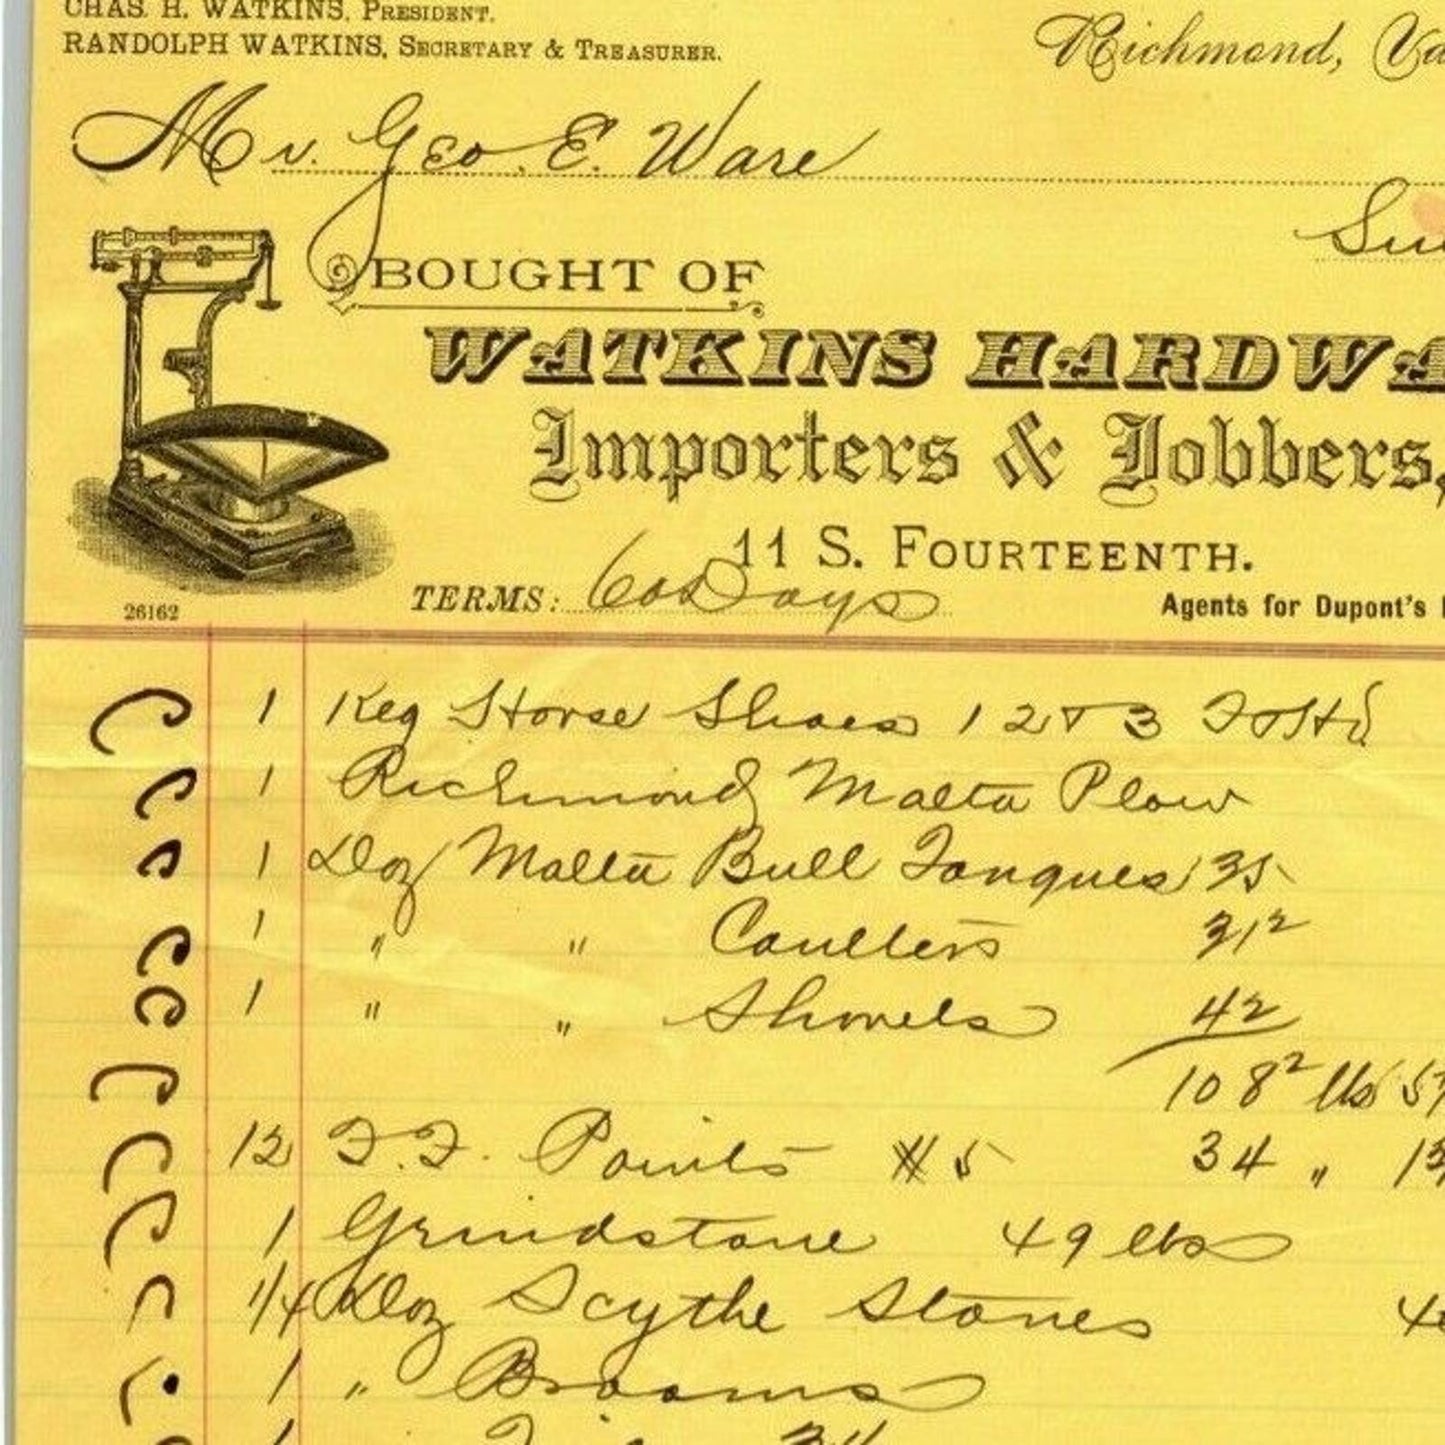 CHAS. H. WATKINS, PRESIDENT.
RANDOLPH WATKINS, SECRETARY & TREASURER.
Richmond, Va
Mr. Geo. E. Ware
BOUGHT OF
WATKINS HARDWA
Importers & Jobbers,
11 S. FOURTEENTH.
TERMS: 60 Days
Agents for Dupont's
26162
1 Keg Horse Shoes 1 2 & 3
1 Richmond Malta Plow
1 Doz Malta Bull Tongues 35
1 " " Coulters 31²
1 " " Shovels 42
108² lbs
12 F.F. Points # 5 34 "
1 Grindstone 49 lbs
1/4 Doz Scythe Stones
1 " Brooms
1